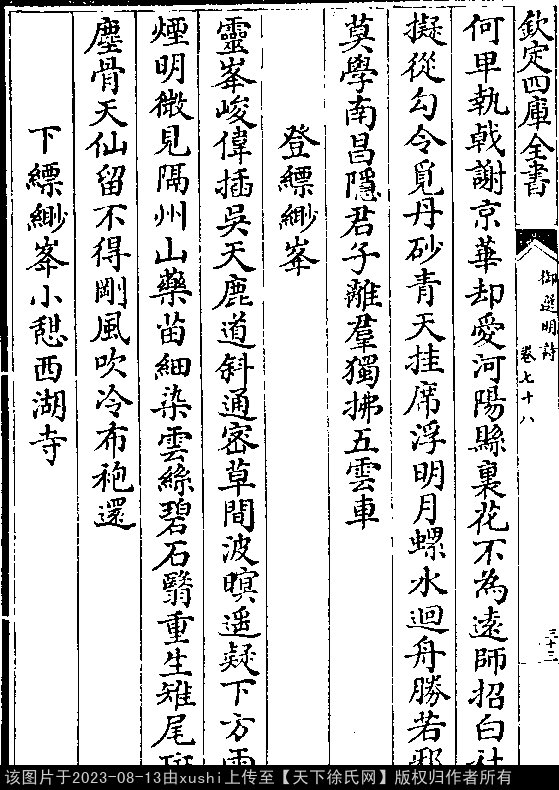 欽定四庫全書
御選明詩
卷七十八
三十三
何早執戟謝京華却愛河陽縣裏花不為遠師招白社
擬從勾令覓丹砂青天挂席浮明月螺水迴舟勝若邪
莫學南昌隱君子離羣獨拂五雲車
登縹緲峯
靈峯峻偉插吳天鹿道斜通宻草間波暝遥疑下方雨
煙明微見隔州山藥苗細染雲絲碧石翳重生雉尾斑
塵骨天仙留不得剛風吹冷布袍還
下縹緲峯小憇西湖寺
该图片于2023-08-13由xushi上传至【天下徐氏网】版权归作者所有